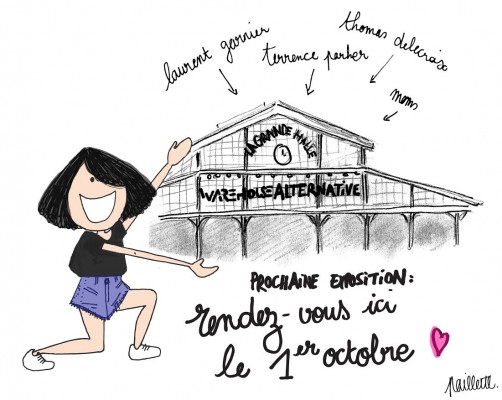 laurent garnier
terrence parker
thomas delecroix
moms
LA GRANDE HALLE
WAREHOUSE ALTERNATIVE
PROCHAINE EXPOSITION:
rendez-vous ici
le 1er octobre
paillette.